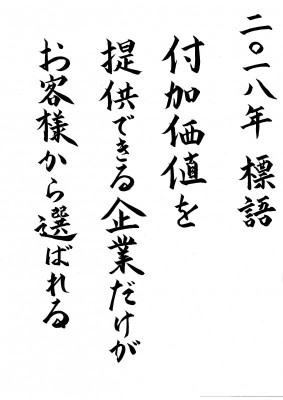 二〇一八年 標語
付加価値を
提供できる企業だけが
お客様から選ばれる